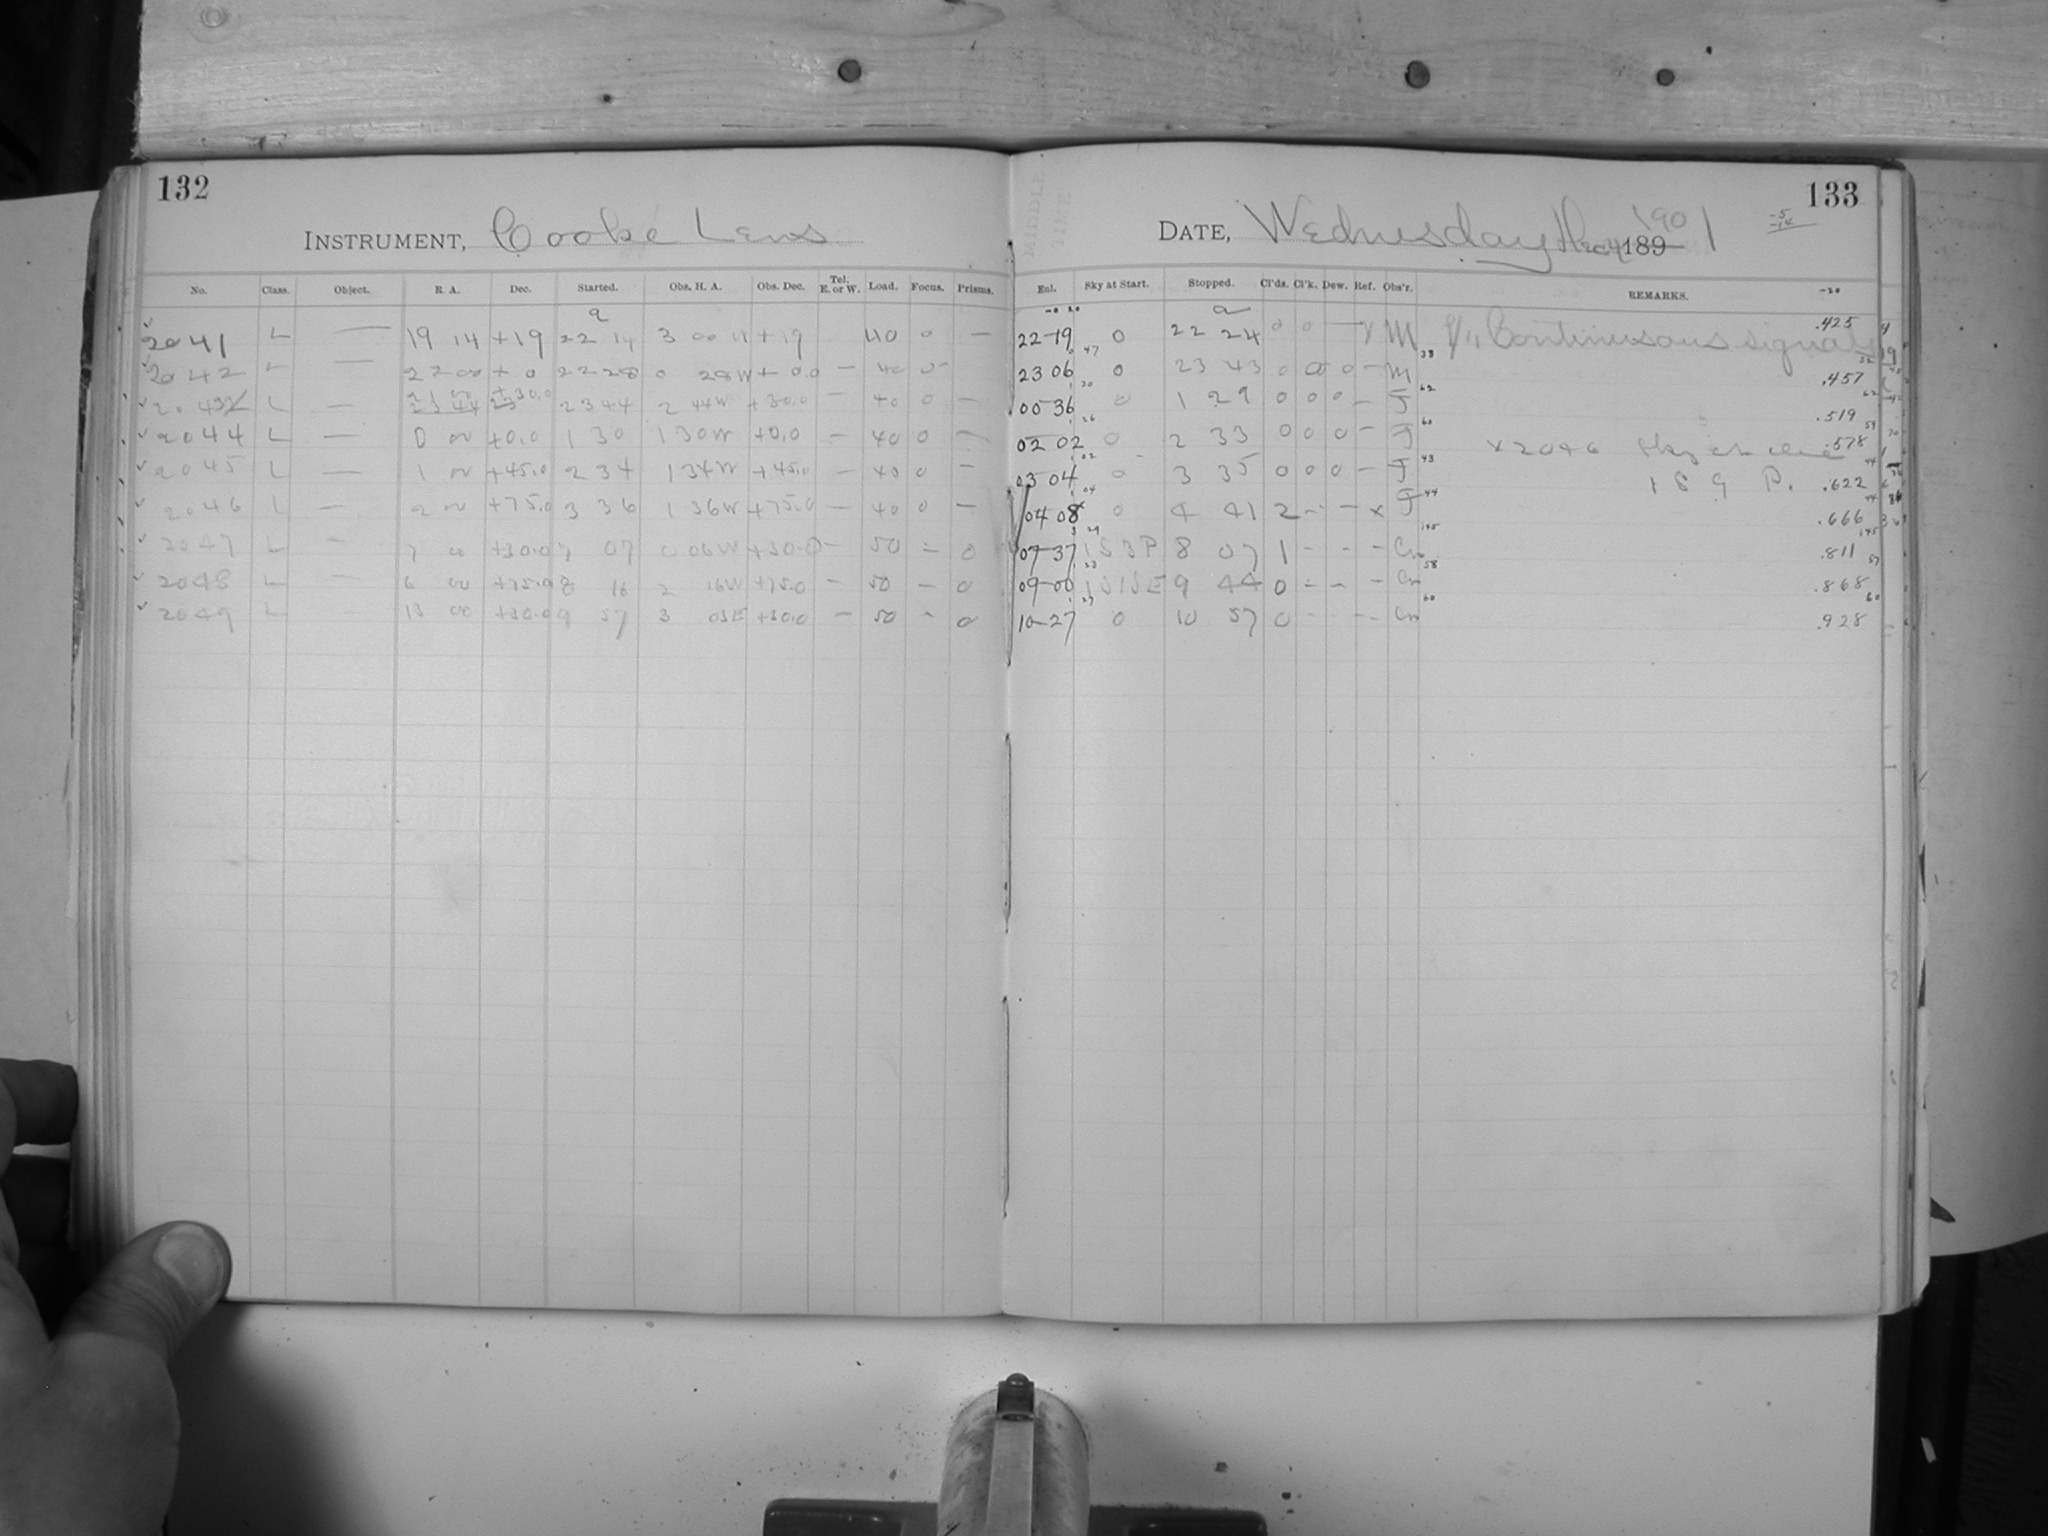 132
INSTRUMENT, Cooke Lens
No. Class. Object. R. A. Dec. Started. Obs. H. A. Obs. Dec. Tel. E. or W. Load. Focus. Prisms.
2041 L — 19 14 +19 22 14 3 00 W +19 40 0 —
2042 L — 22 00 + 0 22 28 0 28W + 0.0 — 40 0
2043 L — 21 00 +30.0 23 44 2 44W +30.0 — 40 0 —
2044 L — 0 00 +0.0 1 30 1 30W +0.0 — 40 0 —
2045 L — 1 00 +45.0 2 34 1 34W +45.0 — 40 0 —
2046 L — 2 00 +75.0 3 36 1 36W +75.0 — 40 0 —
2047 L — 7 00 +30.0 7 07 0 06W +30.0 — 50 — 0
2048 L — 6 00 +75.0 8 16 2 16W +75.0 — 50 — 0
2049 L — 13 00 +30.0 9 57 3 03E +30.0 — 50 — 0
133
DATE, Wednesday Dec 4 189 1901
Enl. Sky at Start. Stopped. Cl'ds. Cl'k. Dew. Ref. Obs'r. REMARKS.
-20
22-19 0 22 24 0 0 — M Continuous signals .425
23 06 0 23 43 0 0 0 — M .457
00 36 0 1 29 0 0 0 — J .519
02 02 0 2 33 0 0 0 — J x 2046 Sky .578
03 04 0 3 35 0 0 0 — J 1 S 9 P. .622
04 08 0 4 41 2 — — x J .666
07-37 1S3P 8 07 1 - - - Cn .811
09-00 1S1SE 9 44 0 - - - Cn .868
10-27 0 10 57 0 - - - Cn .928